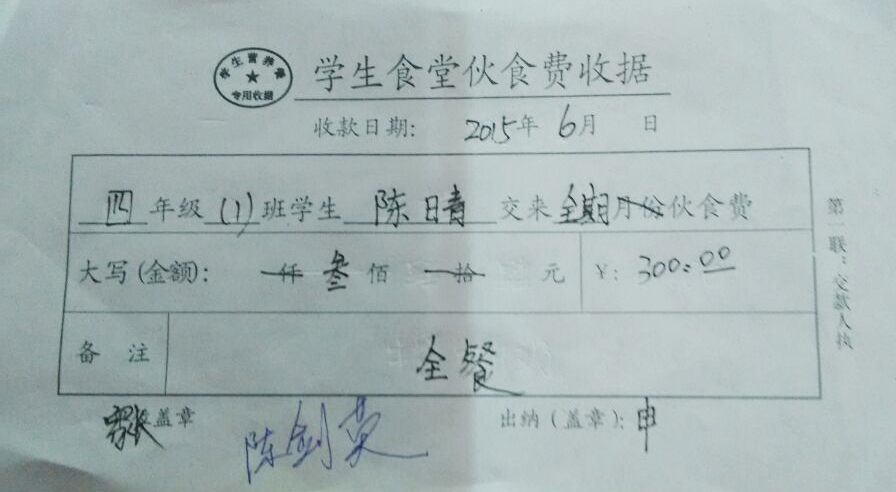 学生营养餐
专用收据
学生食堂伙食费收据
收款日期: 2015年 6月 日
四 年级 (1) 班学生 陈晴 交来 全期月份伙食费
大写(金额): 仟 叁 佰 拾 元 ¥: 300.00
备 注 全餐
盖章 陈剑英 出纳(盖章): 申
第一联:交款人执